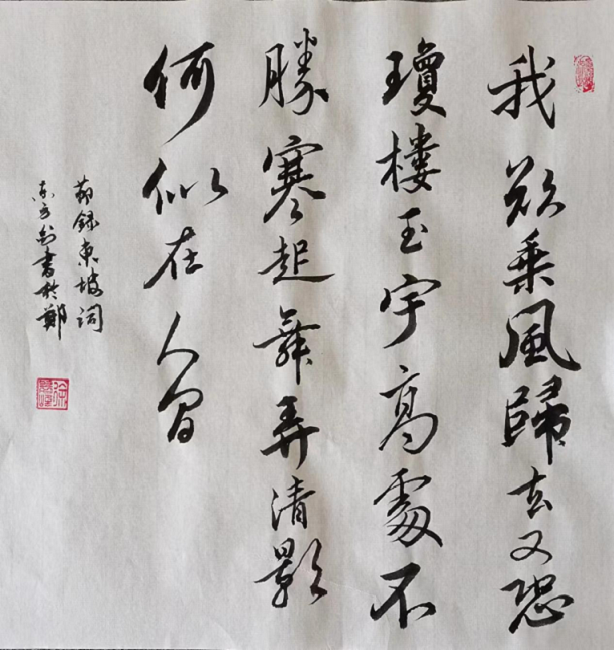 我欲乘風歸去又恐
瓊樓玉宇高處不
勝寒起舞弄清影
何似在人間
節錄東坡詞
東方剑書於鄭